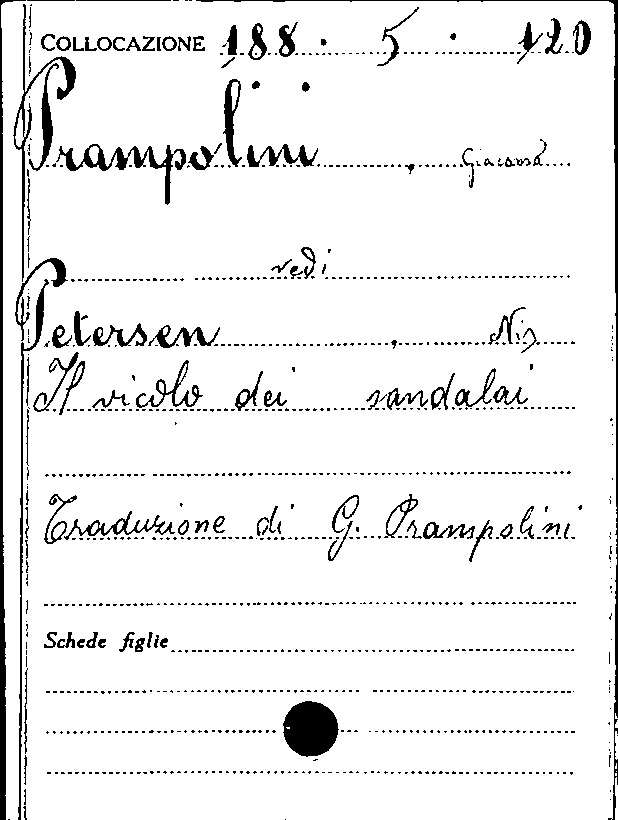 COLLOCAZIONE 188 · 5 · 120
Prampolini, Giacomo
vedi
Petersen, Nis
Il vicolo dei sandalai
Traduzione di G. Prampolini
Schede figlie